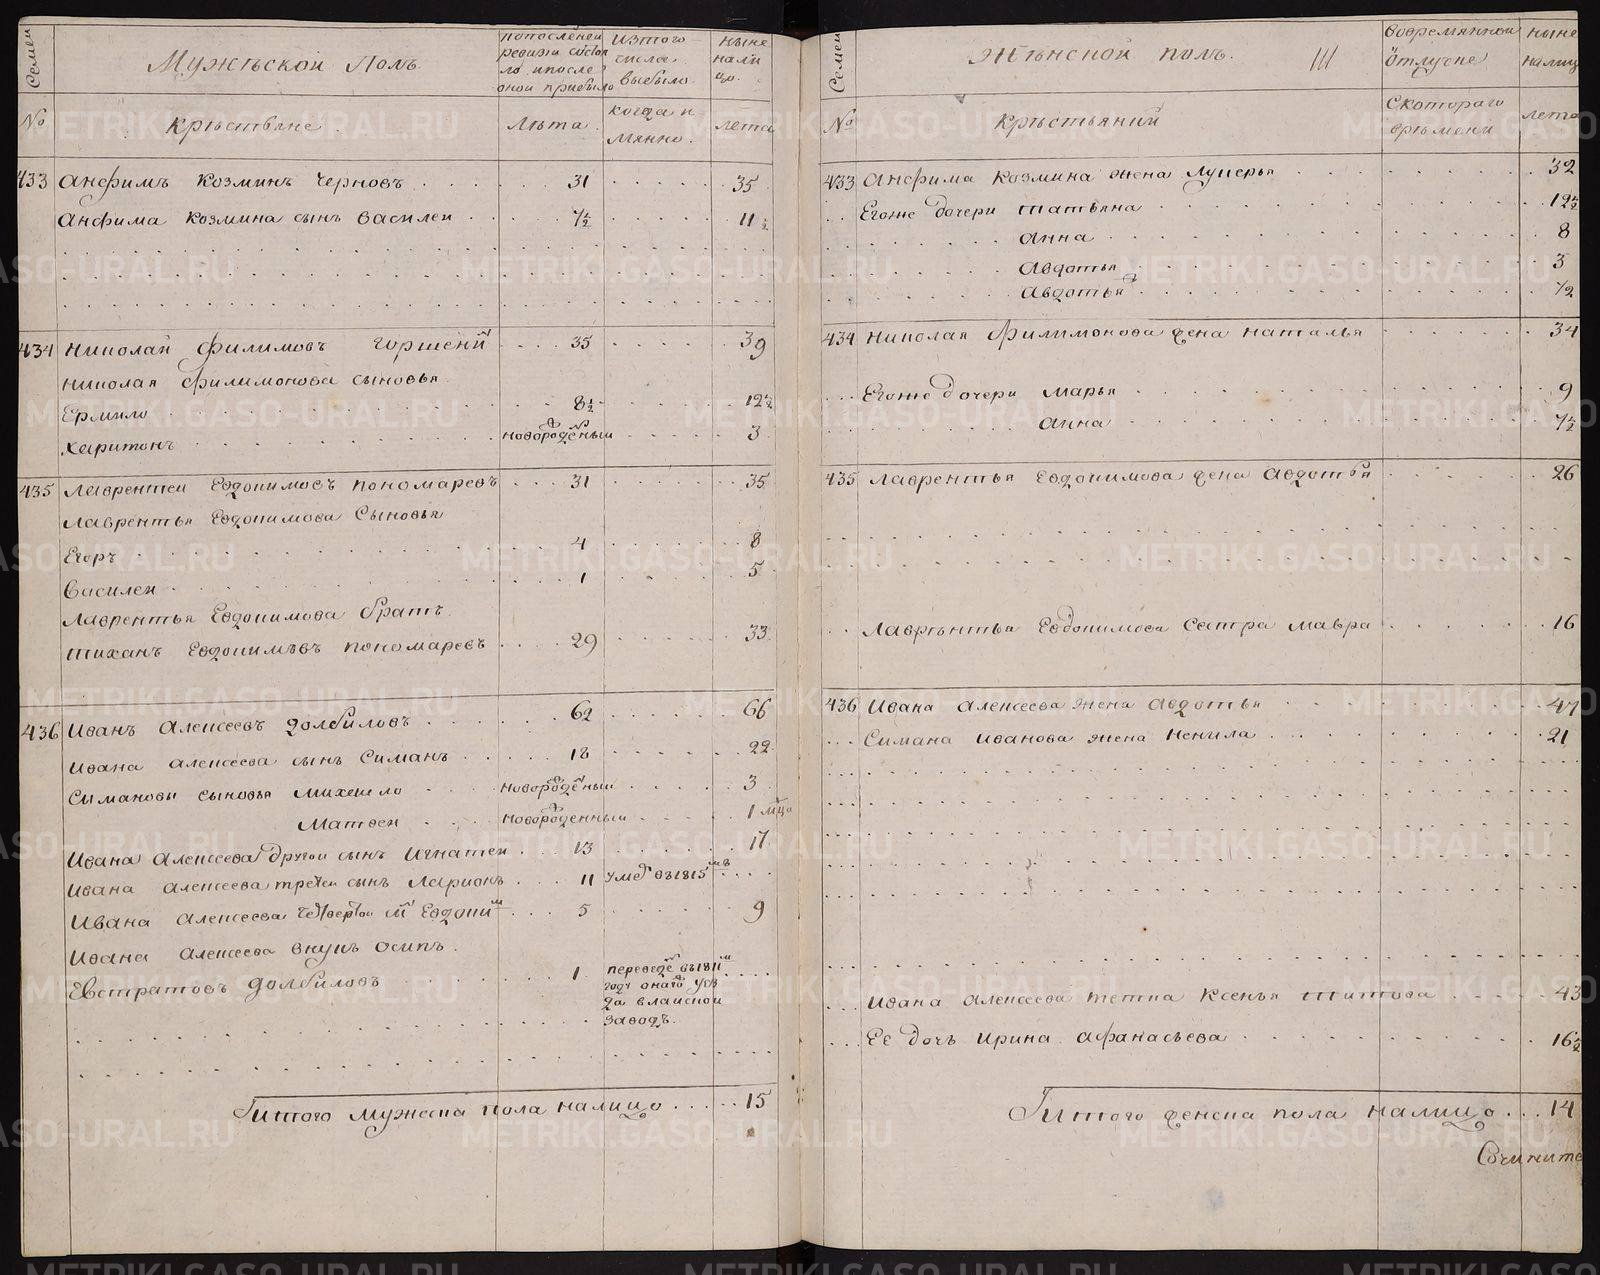 Семеи
Мужеской Полъ.
попоследней
ревизи состоя
ло ипосле
оной прибыло
изтого
числа
выбыло.
ныне
нали
цо.
№
крестьяне.
Лѣта.
когда и
мянно.
лета
433 Анфимъ Козминъ Черновъ 31 35
Анфима Козмина сынъ Василеи 7½ 11½
434 Николай Филимовъ Горшени 35 39
Николая Филимонова сыновья
Ермило 8½ 12½
Харитонъ новорожденыи 3
435 Лаврентеи Евдокимовъ Пономаревъ 31 35
Лаврентья Евдокимова Сыновья
Егоръ 4 8
Василеи 1 5
Лаврентья Евдокимова братъ
Тиханъ Евдокимовъ Пономаревъ 29 33
436 Иванъ Алексеевъ Долбиловъ 62 66
Ивана Алексеева сынъ Симанъ 18 22
Симановы сыновья Михеило новорожденыи 3
Матвеи новорожденныи 1 мца
Ивана Алексеева Другои сынъ Игнатеи 13 17
Ивана Алексеева третеи сынъ Ларионъ 11 умеръ въ1815мъ
Ивана Алексеева Четвертои Евдоким 5 9
Ивана Алексеева внукъ Осипъ
Евстратовъ Долбиловъ 1 переведе въ1811м
году онаго уез
да в
заводъ.
Гитого мужеска пола налицо 15
Семеи
Женской полъ. 111
вовременной
отлучке
ныне
налиц
№
крестьяний
Скотораго
времени
лета
433 Анфима Козмина жена Лукерья 32
Егоже дочери Татьяна 12½
Анна 8
Авдотья 3
Авдотья ½
434 Николая Филимонова жена Наталья 34
Егоже дочери Марья 9
Анна 7½
435 Лаврентья Евдокимова жена Авдотья 26
Лаврентья Евдокимова Сестра Мавра 16
436 Ивана Алексеева жена Авдотья 47
Симана Иванова жена Ненила 21
Ивана Алексеева тетка Ксенья Титова 43
Ее дочь Ирина Афанасьева 16½
Гитого женска пола налицо 14
Сочините
METRIKI.GASO-URAL.RU